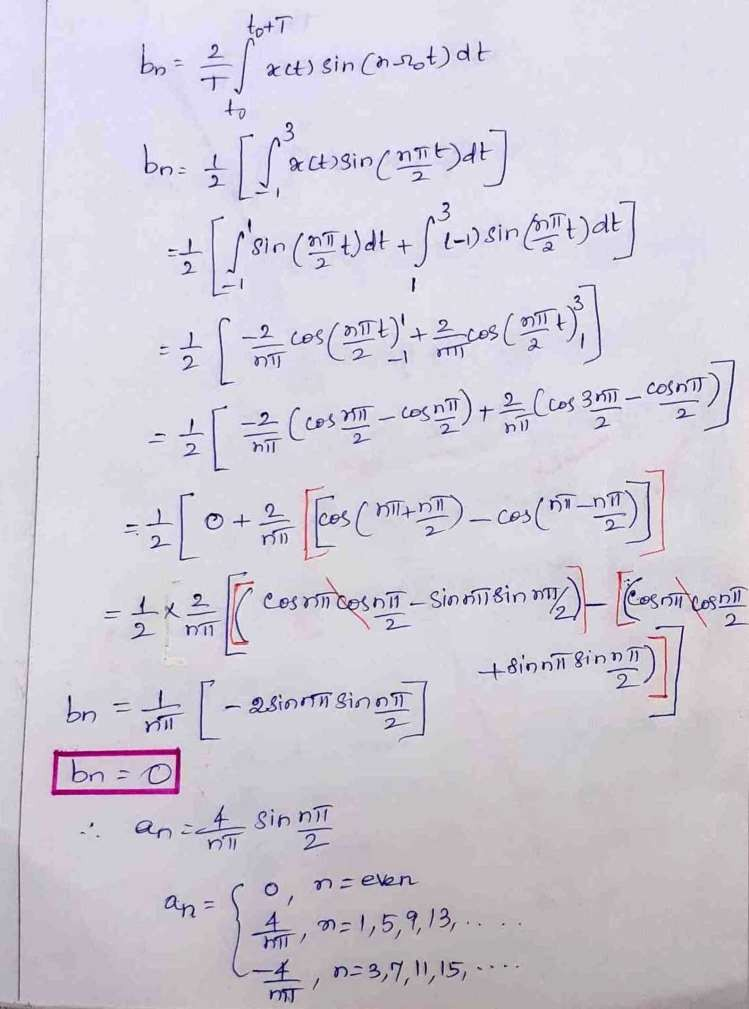 bn = 2/T ∫_{t0}^{t0+T} x(t) sin(nΩ0t) dt
bn = 1/2 [∫_{-1}^{3} x(t) sin(nπt/2) dt]
= 1/2 [∫_{-1}^{1} sin(nπ/2 t) dt + ∫_{1}^{3} (-1) sin(nπ/2 t) dt]
= 1/2 [-2/nπ cos(nπ/2 t)_{-1}^{1} + 2/nπ cos(nπ/2 t)_{1}^{3}]
= 1/2 [-2/nπ (cos nπ/2 - cos nπ/2) + 2/nπ (cos 3nπ/2 - cos nπ/2)]
= 1/2 [0 + 2/nπ [[cos(nπ + nπ/2) - cos(nπ - nπ/2)]]
= 1/2 × 2/nπ [[(cos nπ cos nπ/2 - sin nπ sin nπ/2)] - [(cos nπ cos nπ/2
+ sin nπ sin nπ/2)]]
bn = 1/nπ [-2 sin nπ sin nπ/2]
bn = 0
∴ an = 4/nπ sin nπ/2
an = { 0, n = even
4/nπ, n = 1, 5, 9, 13, .....
-4/nπ, n = 3, 7, 11, 15, ....